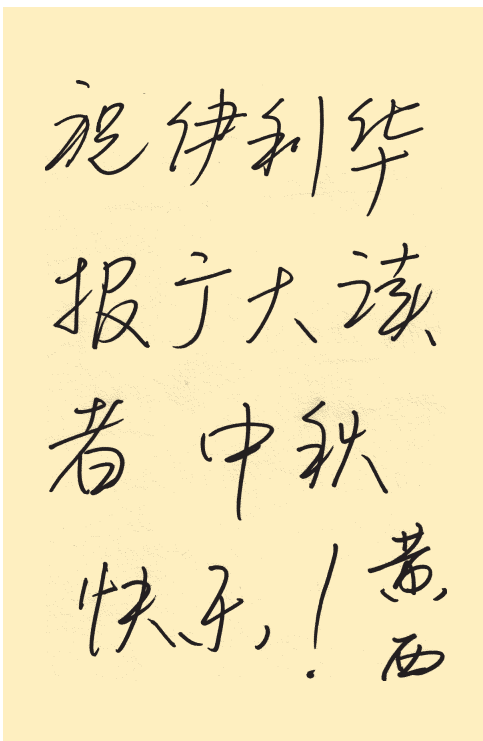 祝伊利华
报广大读
者 中秋
快乐！
黄西